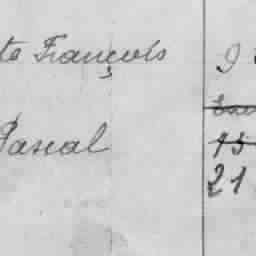 te François 9
Pascal 15
21